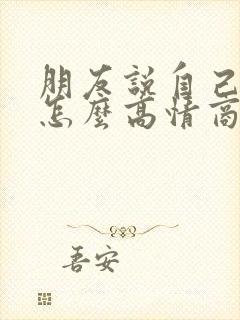 朋友説自己
怎麽高情商
吾安